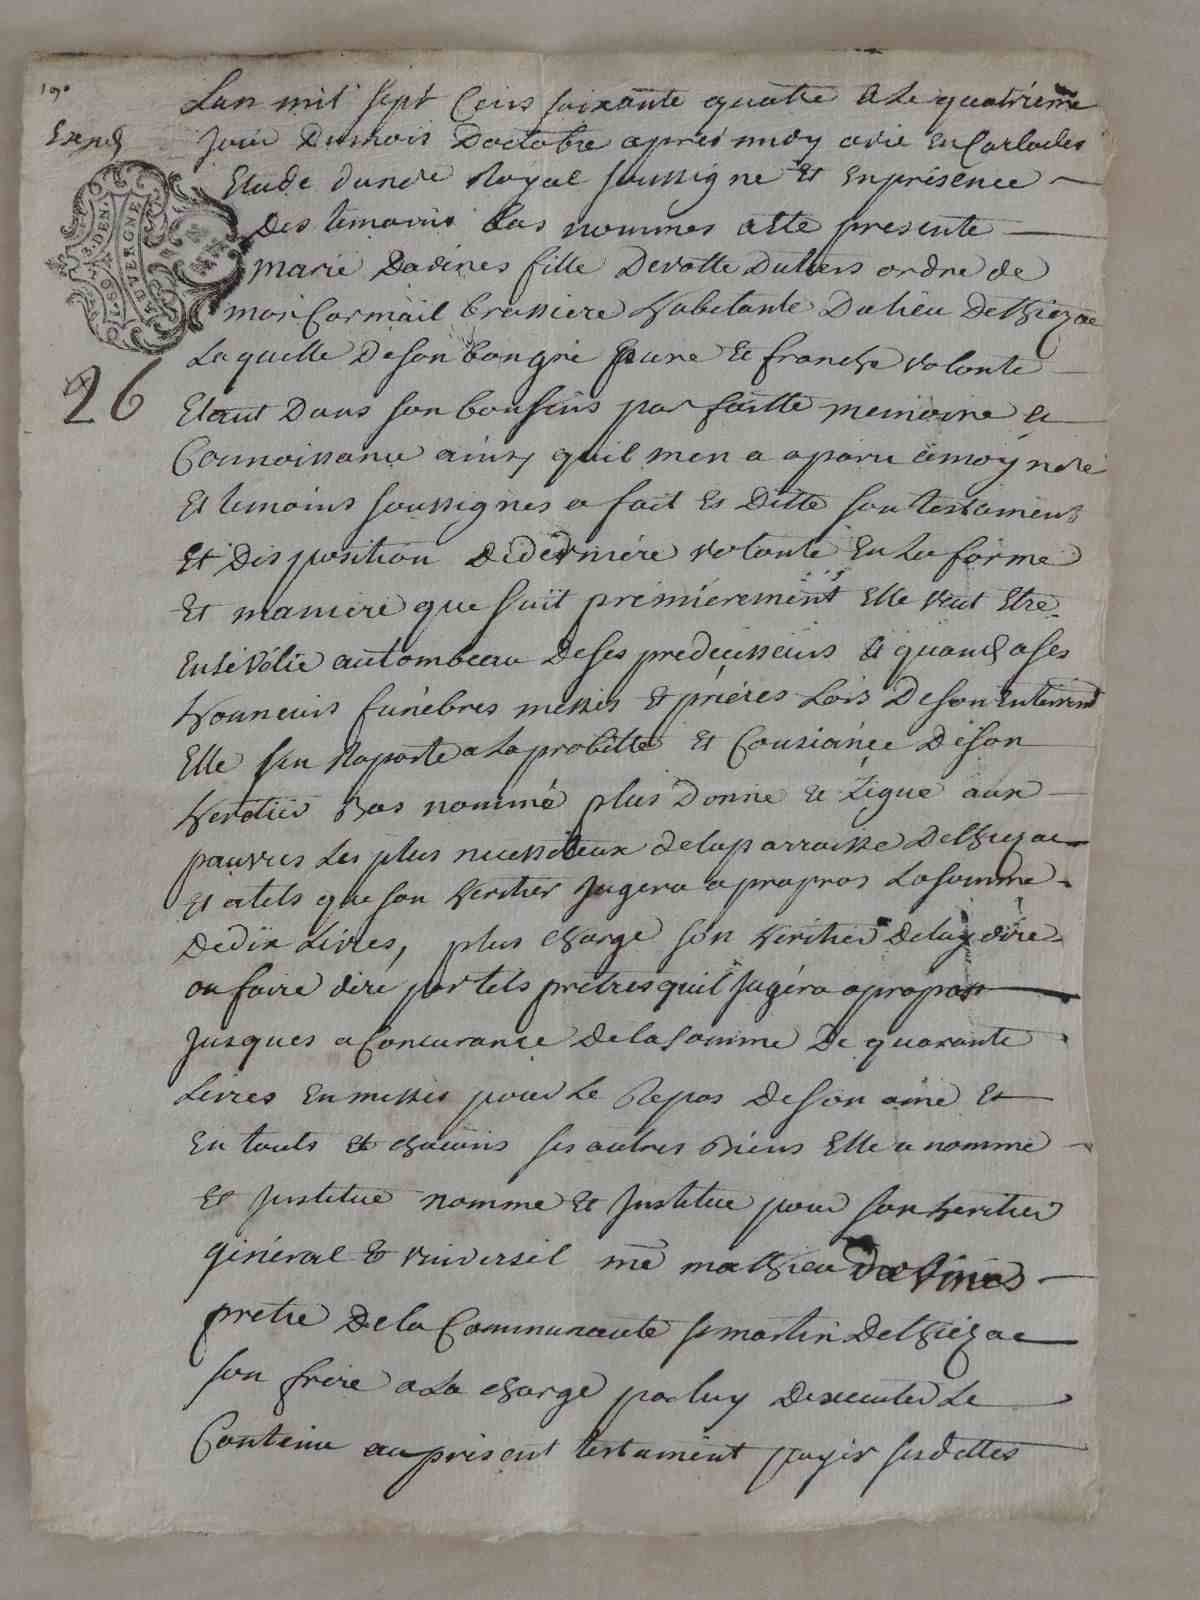 190
Expedi
3. DEN.
AUVERGNE
26
Lan mil sept Cens soixante quatre & Le quatrieme
Jour Dumois Doctobre apres midy a vic En Carlades
Etude dunore Royal soussigne Et Enpresence
Des temoins bas nommes a ete presente
marie Davines fille Devotte Dutiers ordre de
mon Carmail brassiere habitante Dulieu Dethiezac
Laquelle Deson bongré pure Et franche volonte
Etant Dans son bonsens parfaitte memoire et
Connoissance ainsy quil men a aparu amoy nore
Et temoins soussignes a fait Et Ditte son testament
Et Disposition Dederniére volonté En La forme
Et maniere que suit premiérement Elle veut Etre
Ensevélie autombeau Deses predecesseurs & quand ases
honneurs funébres messes Et priéres Lors Deson Enterremt
Elle sen Raporte a La probitté Et Consiance Deson
heretier Bas nommé plus Donne et Légue aux
pauvres Les plus necessiteux delaparroisse Dethiezac
Et atels que son heritier Jugera apropros Lasomme
Dedix Livres, plus charge son heritier Deluy dire
ou faire dire par tels pretres quil Jugéra apropos
Jusques a Concurance Delasomme De quarante
Livres En messes pour Le Repos Deson ame Et
En touts Et chacuns ses autres Biens Elle a nommé
Et Justitue nomme Et Justitue pour son heritier
général Et universel me mathieu davines
pretre Dela Communauté st martin Dethiezac
son frere a La charge par luy Dexecuter Le
Contenu au present testament payer ses dettes